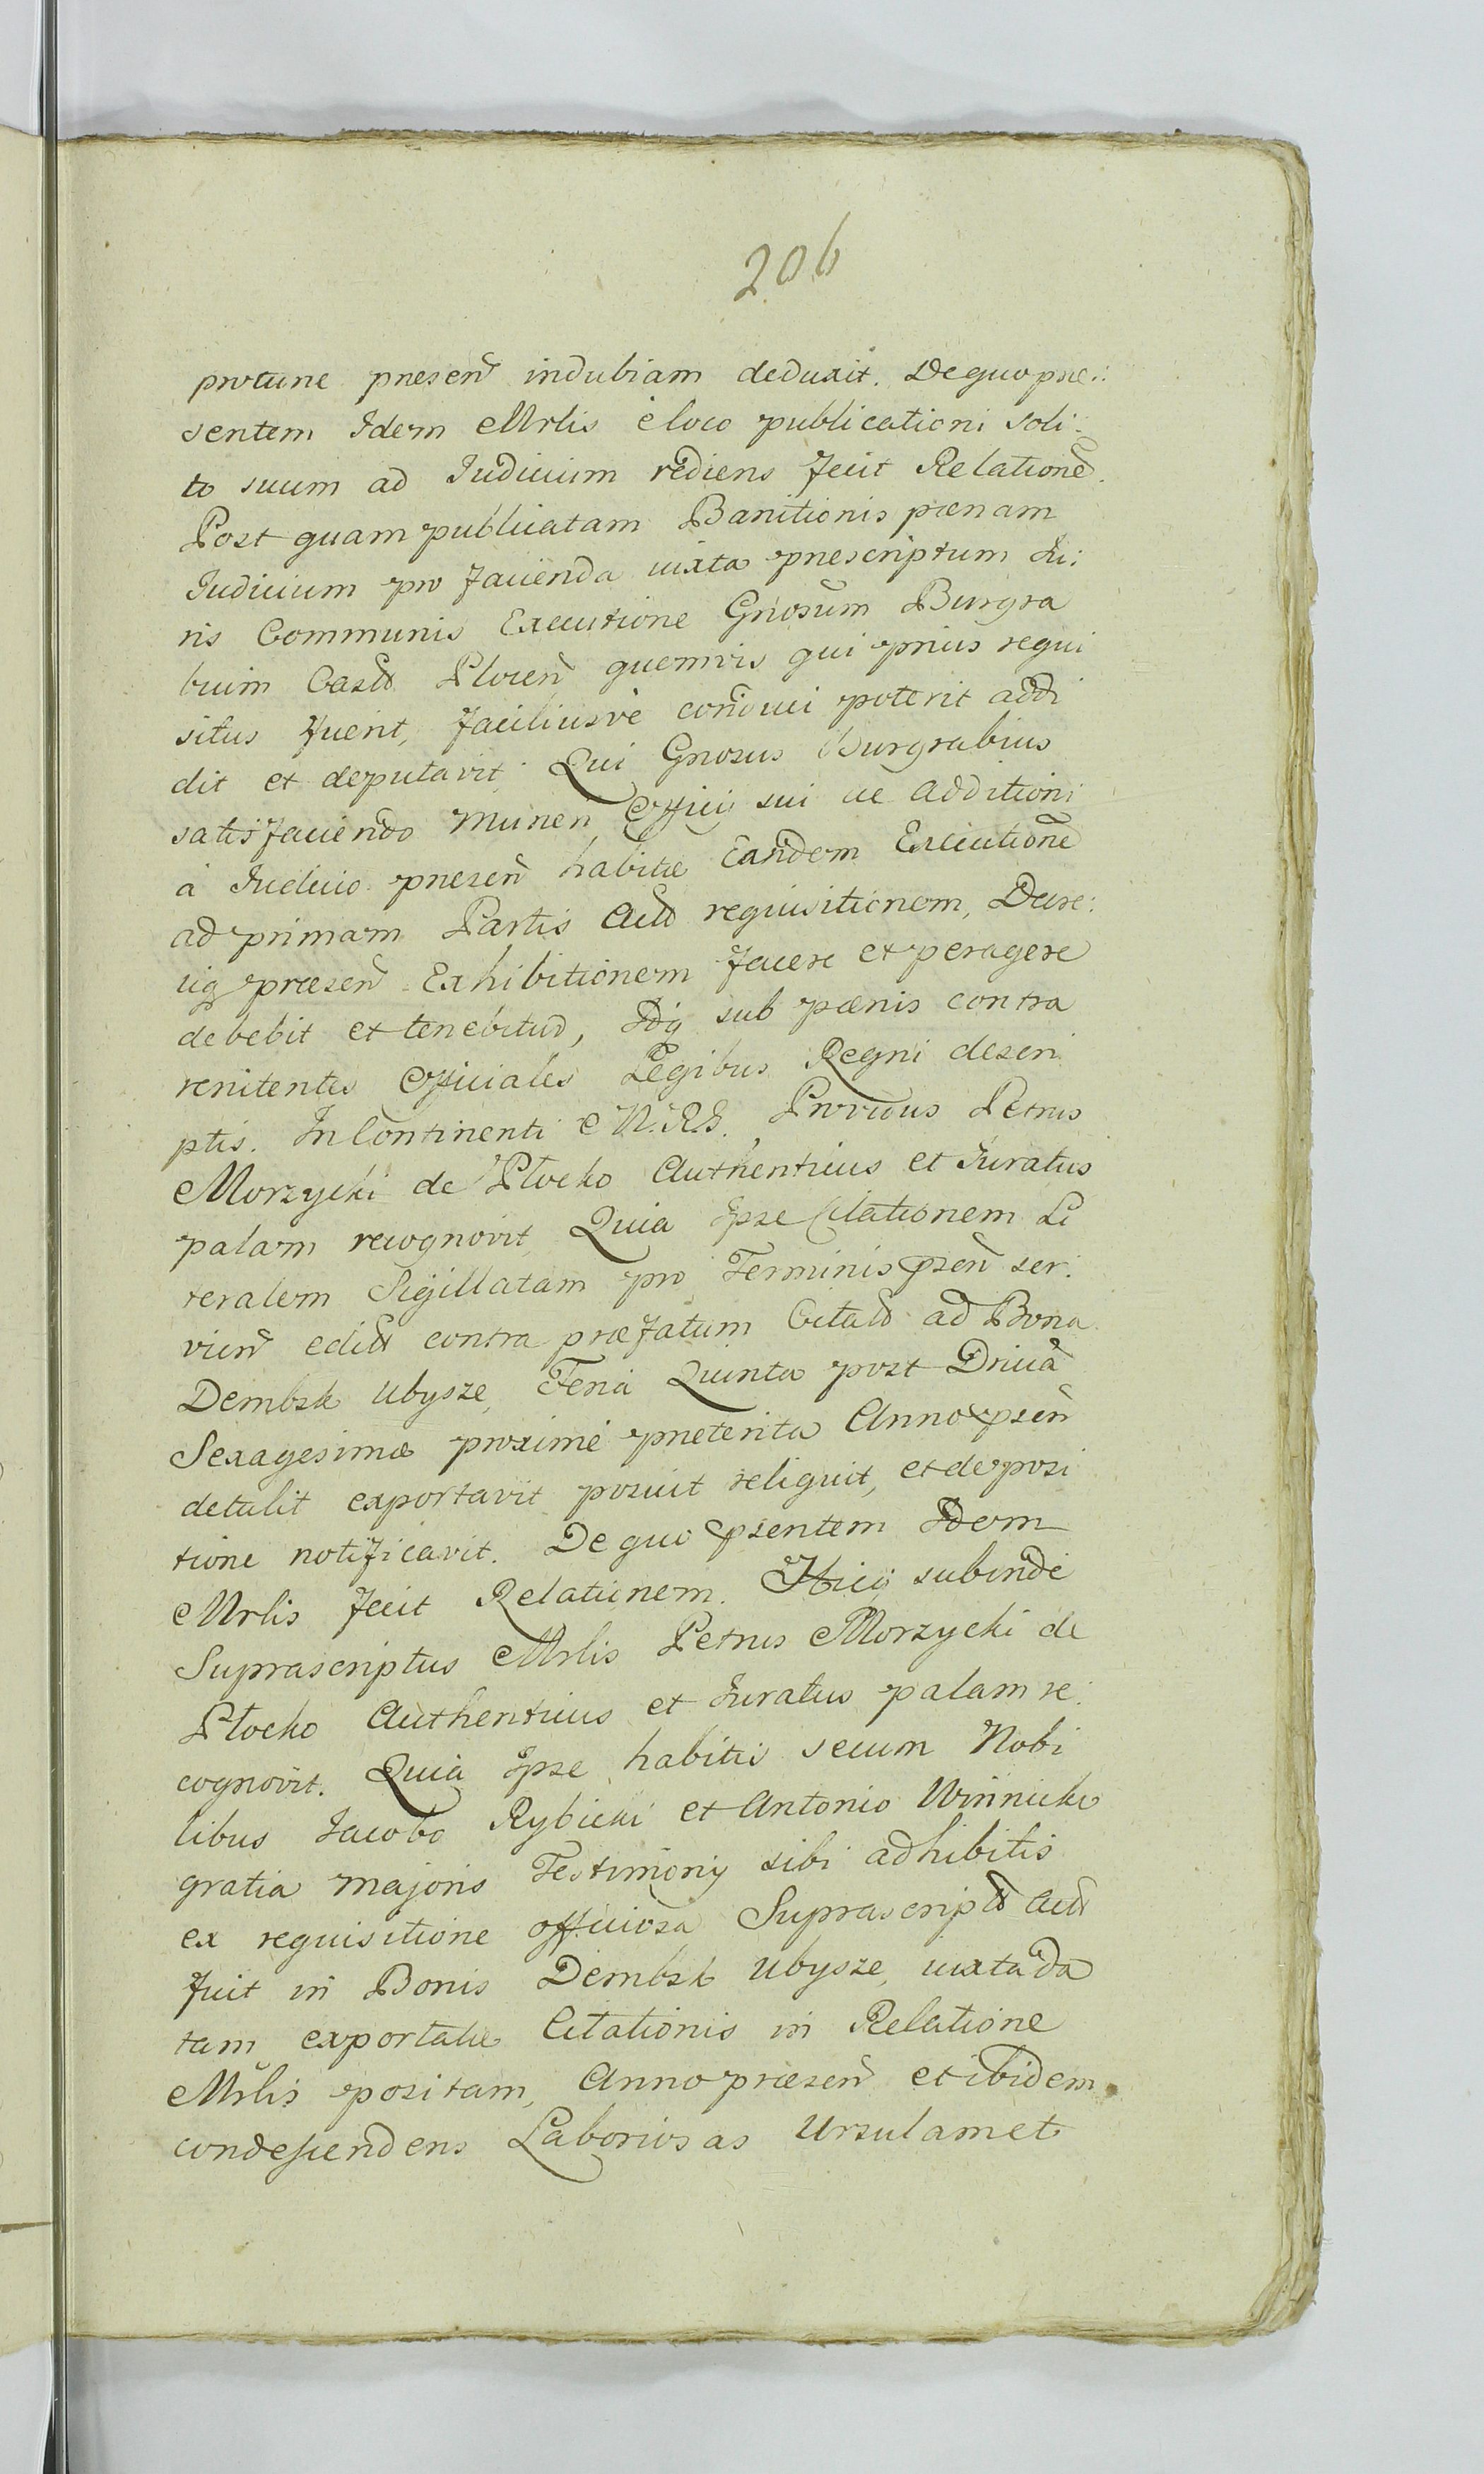 206
protunc presen̄ indubiam deduxit. De quo præ:
sentem Idem Mrlis è loco publicationi soli:
to suum ad Iudicium rediens fecit Relationē.
Post quam publicatam Banitionis pænam
Iudicium pro facienda iuxta præscriptum Iu:
ris Communis Executione Gnosum Burgra
bium Castr̄ Plocen̄ quemvis qui prius requi
situs fuerit, faciliusvè conduci poterit addi
dit et deputavit, Qui Gnosus Burgrabius
satisfaciendo muneri Officij sui ac additioni
à Iudicio presen̄ habitæ Eandem Executionē
ad primam Partis Actō requisitionem, Decre:
tiq præsen̄ Exhibitionem facere et peragere
debebit et tenebitur, Idq sub pænis contra
renitentes Officiales Legibus Regni descri
ptis. In Continenti M.R.S. Providus Petrus
Morzycki de Płocko Authenticus et Iuratus
palam recognovit, Quia Ipse Citationem Li
teralem Sigillatam pro Terminis psen̄ ser:
vien̄ edit̄ contra præfatum Citatō ad Bona
Dembsk Ubysze, Feria Quinta post Dnicā
Sexagesimæ proximè præterita Anno psen̄
detulit exportavit posuit reliquit, et de posi
tione notificavit. De quo psentem Idem
Mrlis fecit Relationem. Itidq subinde
Suprascriptus Mrlis Petrus Morzycki de
Płocko Authenticus et Iuratus palam re:
cognovit. Quia Ipse habitis secum Nobi
libus Iacobo Rybicki et Antonio Winnicki
gratia majoris Testimonij sibi adhibitis
ex requisitione officiosa Suprascriptō Actō
fuit in Bonis Dembsk Ubysze, iuxta da
tam exportatæ Citationis in Relatione
Mrlis positam, Anno præsen̄ et ibidem
condescendens Laboriosas Ursulam et